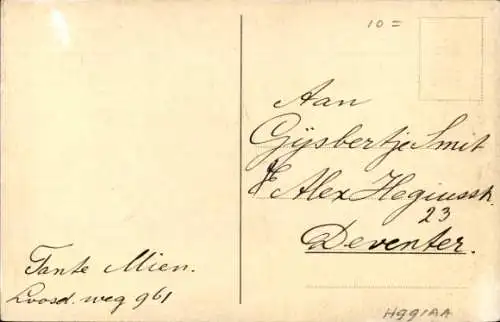 10 =
Aan
Gijsbertje Smit
Alex Hegiusstr.
23
Deventer.
Tante Mien.
Loosd. weg 961
H991AA